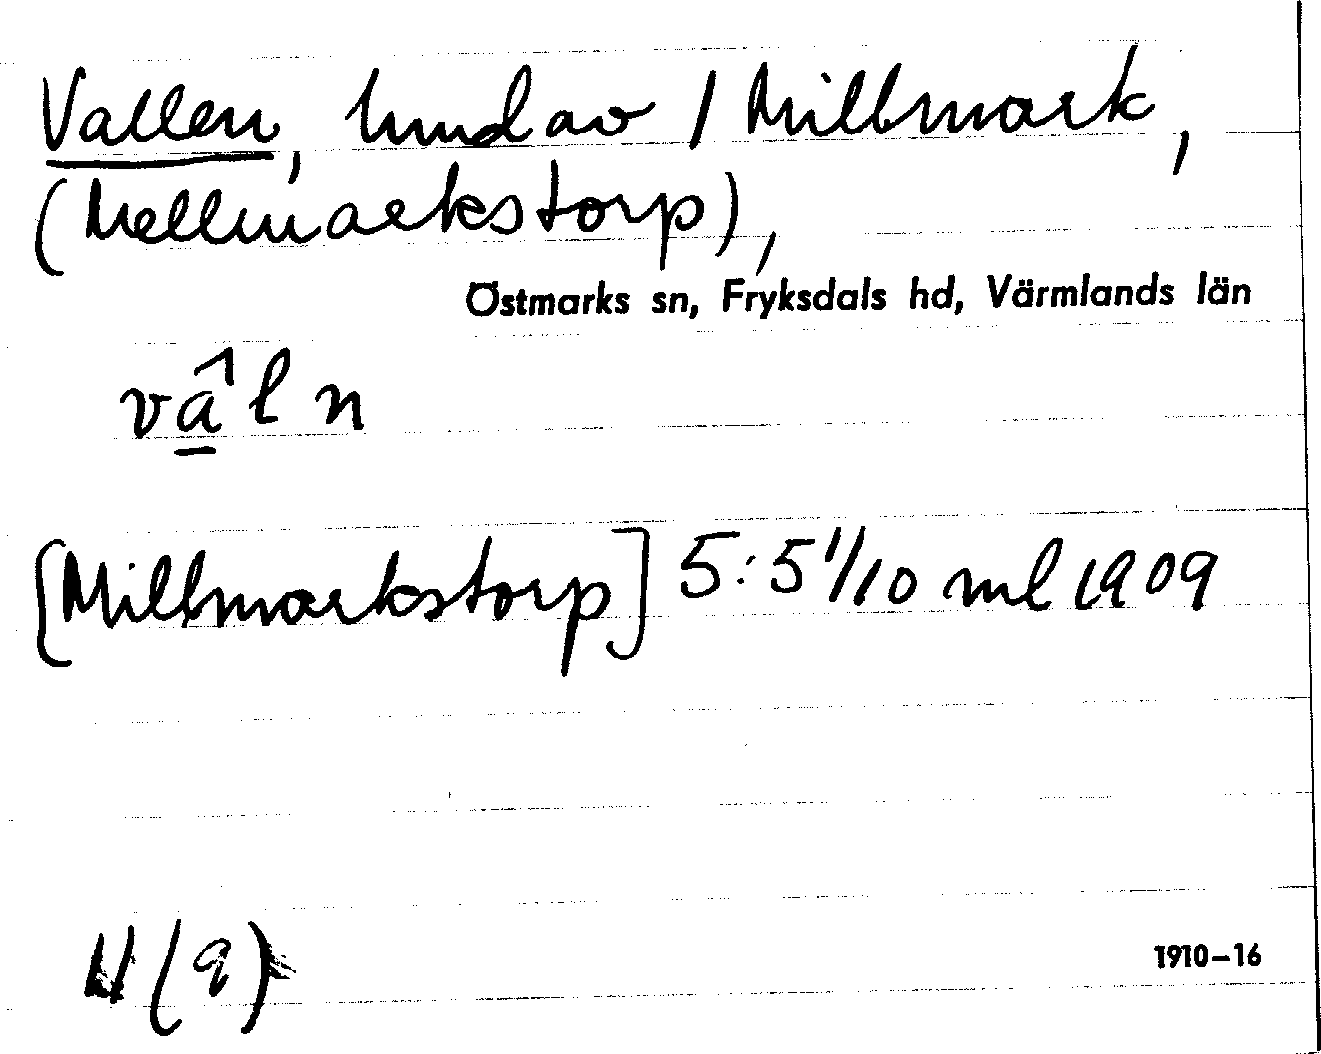 Vallen, hmd av / Millmark,
(Mellmarkstorp),
Östmarks sn, Fryksdals hd, Värmlands län
vâl n
[Millmarkstorp] 5:5 1/10 ml 1909
(q)
1910–16